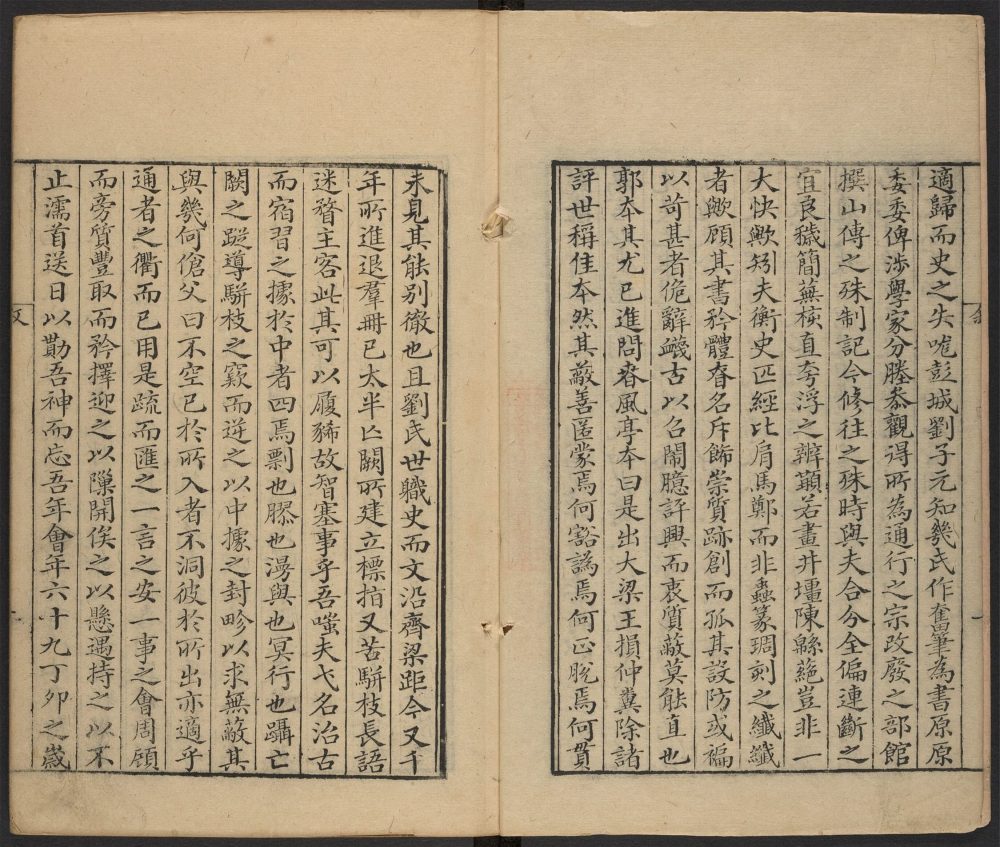 適歸而史之失咙彭城劉子元知幾氏作奮筆為書原原
委委俾涉學家分塍參觀得所為通行之宗改廢之部館
撰山傳之殊制記今修往之殊時與夫合分全偏連斷之
宜良穢簡蕪核直夸浮之辨顓若畫井壃陳緜蕝豈非一
大快歟矧夫衡史匹經比肩馬鄭而非蟲篆琱刻之纖纖
者歟顧其書矜體眘名斥飾崇質跡創而孤其設防或褊
以苛甚者佹辭衊古以召鬧臆評興而衷質蔽莫能直也
郭本其尤已進問春風亭本曰是出大梁王損仲糞除諸
評世稱佳本然其蔽善匿蒙焉何豁譌焉何正脫焉何貫
未見其能別徹也且劉氏世職史而文沿齊梁距今又千
年所進退羣冊已太半亾闕所建立標指又苦駢枝長語
迷瞀主客此其可以履豨故智塞事乎吾嗤夫弋名治古
而宿習之據於中者四焉剽也膠也漫與也冥行也躡亡
闕之蹤導駢枝之窾而逆之以中據之封畛以求無蔽其
與幾何傖父曰不空已於所入者不洞彼於所出亦適乎
通者之衢而已用是疏而匯之一言之安一事之會周顧
而旁質豐取而矜擇迎之以隟開俟之以懸遇持之以不
止濡首送日以勩吾神而忘吾年會年六十九丁卯之歲